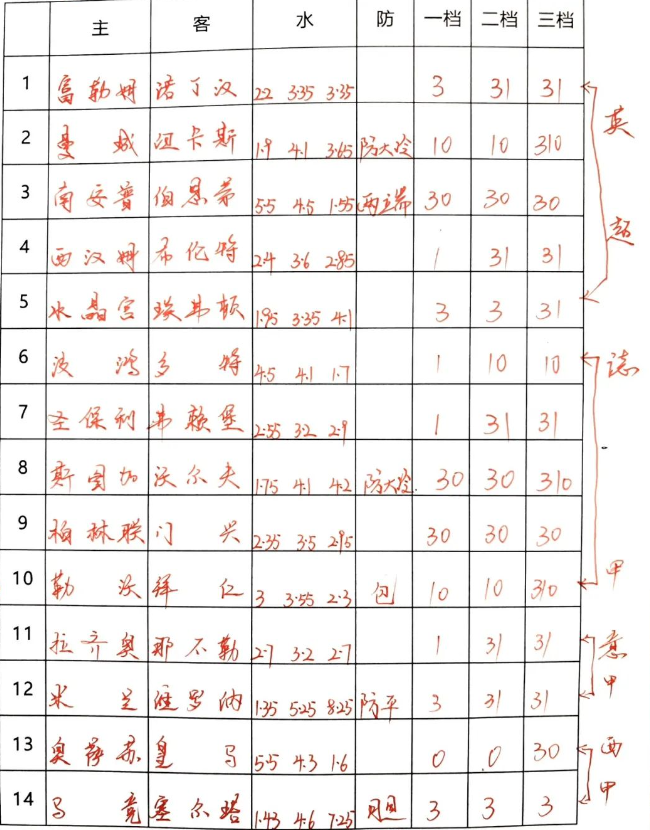 主 客 水 防 一档 二档 三档
1 富勒姆 诺丁汉 2.2 3.35 3.35 3 31 31
2 曼城 纽卡斯 1.9 4.1 3.65 防大冷 10 10 310
3 南安普 伯恩茅 5.5 4.5 1.55 两端 30 30 30
4 西汉姆 布伦特 2.4 3.6 2.85 1 31 31
5 水晶宫 埃弗顿 1.95 3.35 4.1 3 3 31
英超
6 波鸿 多特 4.5 4.1 1.7 1 10 10
7 圣保利 弗赖堡 2.55 3.2 2.9 1 31 31
8 斯图加 沃尔夫 1.75 4.1 4.2 防大冷 30 30 310
9 柏林联 门兴 2.35 3.5 2.95 30 30 30
10 勒沃 拜仁 3 3.55 2.3 包 10 10 310
甲
11 拉齐奥 那不勒 2.7 3.2 2.7 1 31 31
12 米兰 维罗纳 1.35 5.25 8.25 防平 3 31 31
意甲
13 奥萨苏 皇马 5.5 4.3 1.6 0 0 30
14 马竞 塞尔塔 1.43 4.6 7.25 3 3 3
西甲